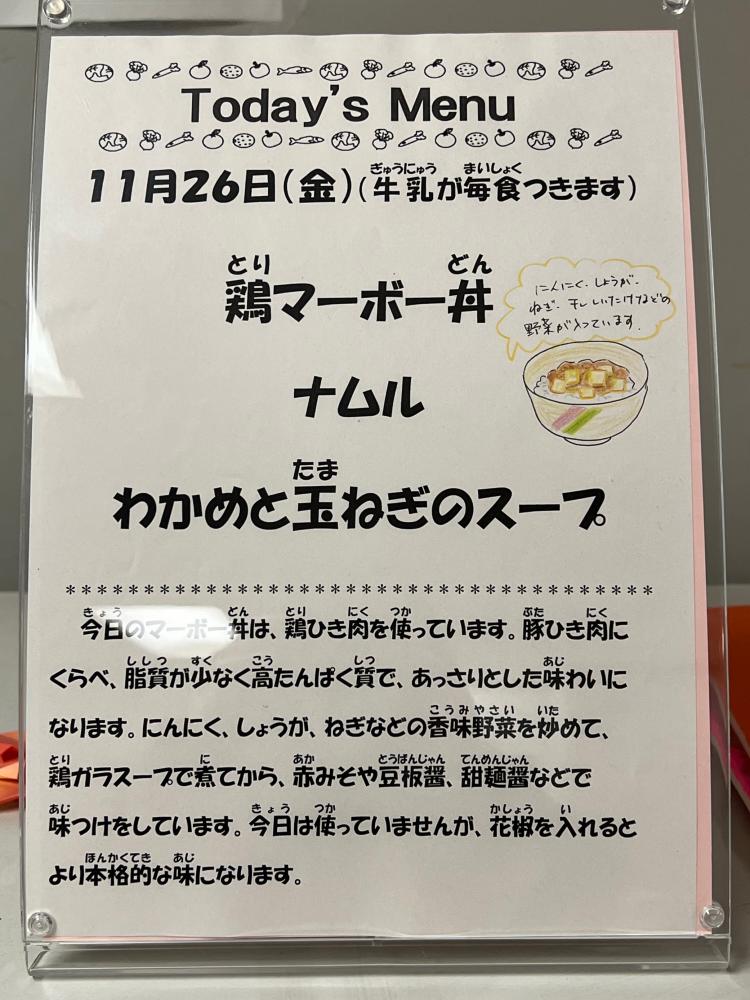 Today's Menu
11月26日(金)(牛乳が毎食つきます)
鶏マーボー丼
にんにく、しょうが、
ねぎ、干ししいたけなどの
野菜が入っています。
ナムル
わかめと玉ねぎのスープ
**********************************************
今日のマーボー丼は、鶏ひき肉を使っています。豚ひき肉に
くらべ、脂質が少なく高たんぱく質で、あっさりとした味わいに
なります。にんにく、しょうが、ねぎなどの香味野菜を炒めて、
鶏ガラスープで煮てから、赤みそや豆板醤、甜麺醤などで
味つけをしています。今日は使っていませんが、花椒を入れると
より本格的な味になります。